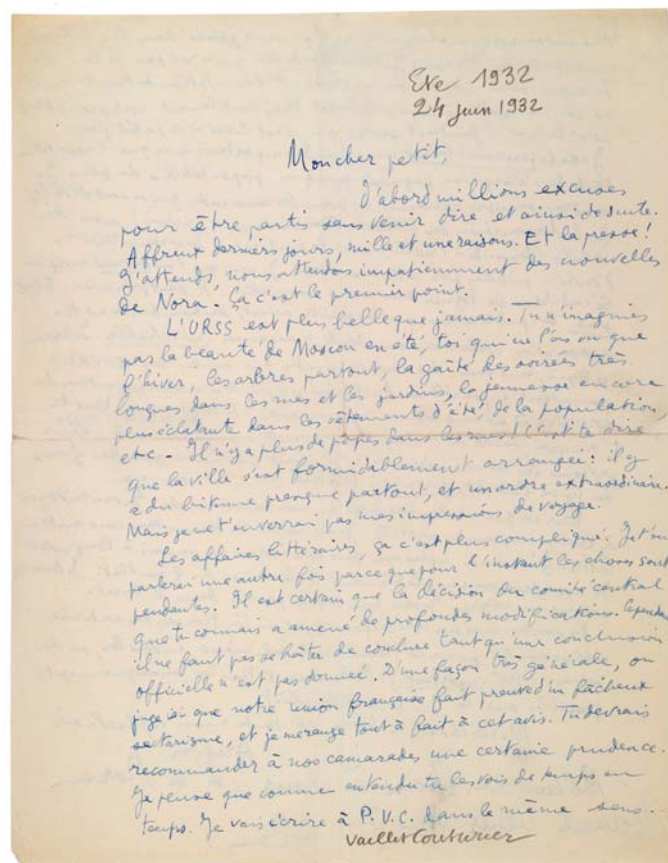 Ete 1932
24 juin 1932
Mon cher petit,
D'abord millions excuses
pour être partis sans venir dire et ainsi de suite.
Affreux derniers jours, mille et une raisons. Et la presse!
J'attends, nous attendons impatiemment des nouvelles
de Nora. Ça c'est le premier point.
L'URSS est plus belle que jamais. Tu n'imagines
pas la beauté de Moscou en été, toi qui ne l'as vu que
l'hiver, les arbres partout, la gaîté des soirées très
longues dans les rues et les jardins, la jeunesse encore
plus éclatante dans les vêtements d'été de la population
etc - Il n'y a plus de popes dans les rues! C'est te dire
que la ville s'est formidablement arrangée: il y
a du bitume presque partout, et un ordre extraordinaire.
Mais je ne t'enverrai pas mes impressions de voyage.
Les affaires littéraires, ça c'est plus compliqué. Je t'en
parlerai une autre fois parce que pour l'instant les choses sont
pendantes. Il est certain que la décision du comité central
que tu connais a amené de profondes modifications. Cependant
il ne faut pas se hâter de conclure tant qu'une conclusion
officielle n'est pas donnée. D'une façon très générale, on
juge ici que notre union française fait preuve d'un fâcheux
sectarisme, et je me range tout à fait à cet avis. Tu devrais
recommander à nos camarades une certaine prudence.
Je pense que comme entendu tu les vois de temps en
temps. Je vais écrire à P.V.C. dans le même sens.
Vaillet Couturier